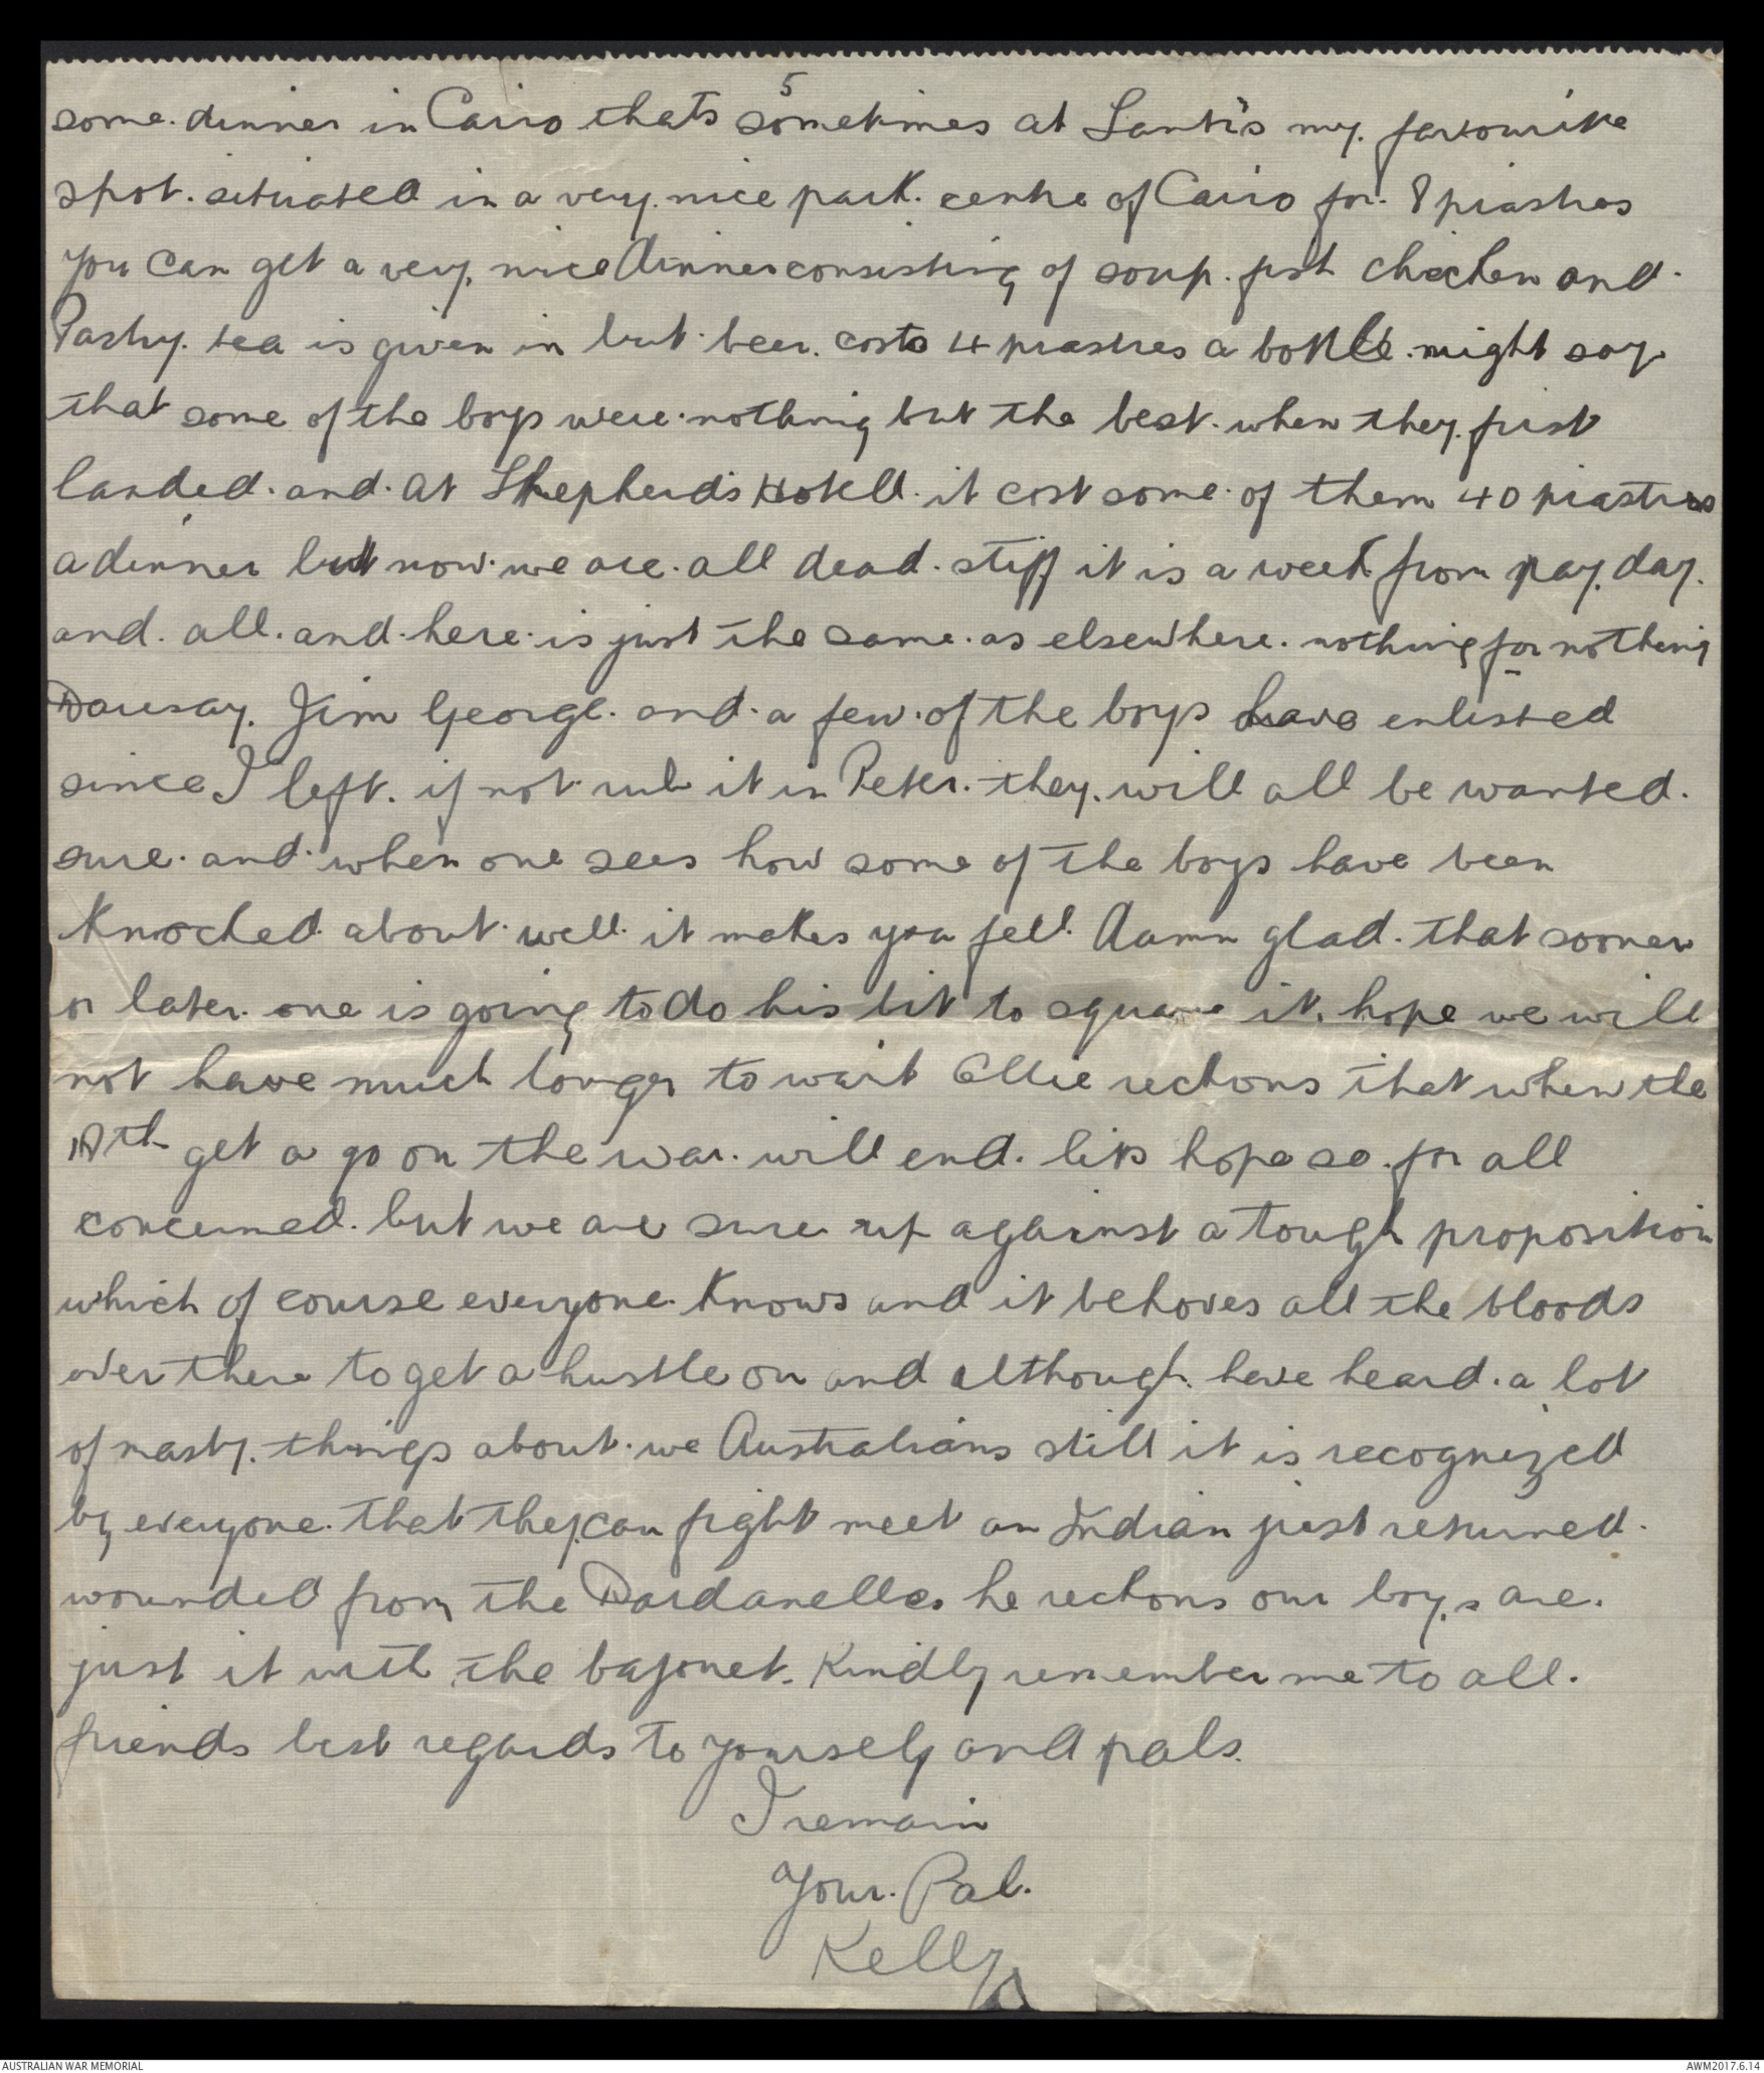 5
some. dinner in Cairo thats sometimes at Santi's my. favourite
spot. situated in a very. nice park. centre of Cairo for. 8 piastres
you can get a very. nice dinner consisting of soup. fish chicken and.
Pastry. tea is given in but. beer. costs 4 piastres a bottle. might say.
that some of the boys were. nothing but the best. when they. first
landed. and. at Shepherds Hotell. it cost some. of them 40 piastres
a dinner but now. we are. all dead. stiff it is a week from pay. day.
and. all. and. here. is just the same. as elsewhere. nothing for nothing
Daresay. Jim George. and. a few. of the boys have enlisted
since I left. if not rub it in Peter. they. will all be wanted.
sure. and. when one sees how some of the boys have been
knocked. about. well. it makes you fell. damn glad. that sooner
or later. one is going to do his bit to square it. hope we will
not have much longer to wait Ollie reckons that when the
th get a go on the war. will end. lets hope so. for all
concerned. but we are sure up against a tough proposition
which of course everyone. knows and it behoves all the bloods
over there to get a hustle on and although. have heard. a lot
of nasty. things about. we Australians still it is recognized
by everyone. that they. can fight meet an Indian just returned.
wounded from the Dardanelles he reckons our boys are.
just it with the bayonet. Kindly remember me to all.
friends best regards to yourself and pals.
I remain
Your. Pal.
Kelly
AUSTRALIAN WAR MEMORIAL
AWM2017.6.14